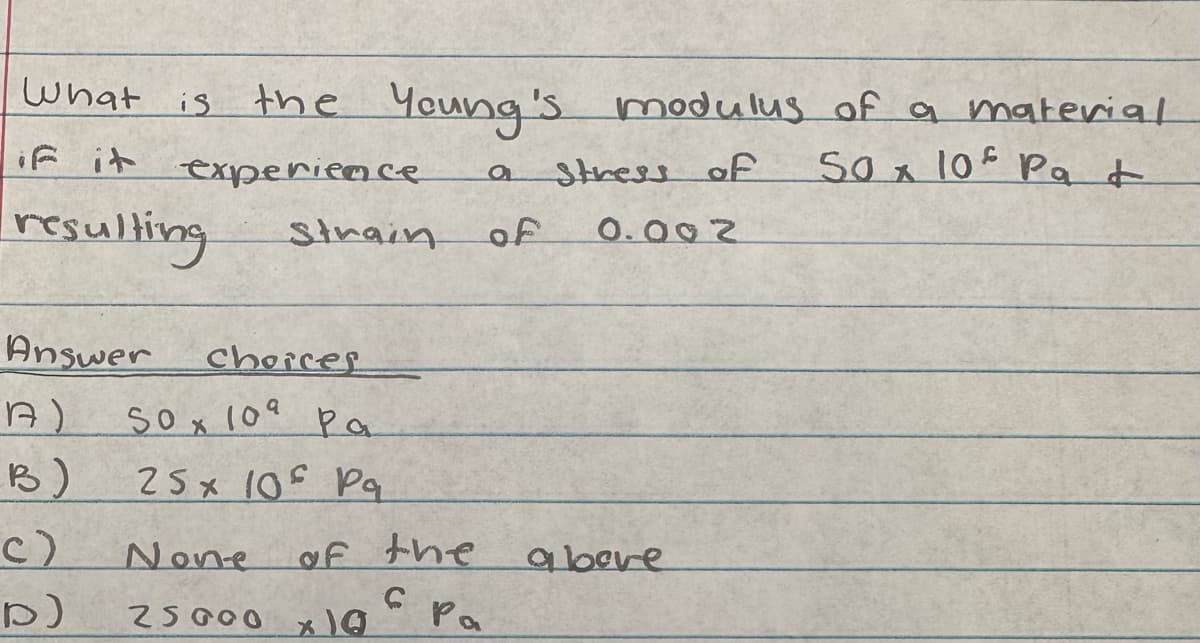 What is the Young's modulus of a material
if it experience a stress of 50 x 10⁶ Pa &
resulting strain of 0.002
Answer choices
A) 50 x 10⁹ Pa
B) 25 x 10⁶ Pa
C) None of the above
D) 25000 x 10⁶ Pa